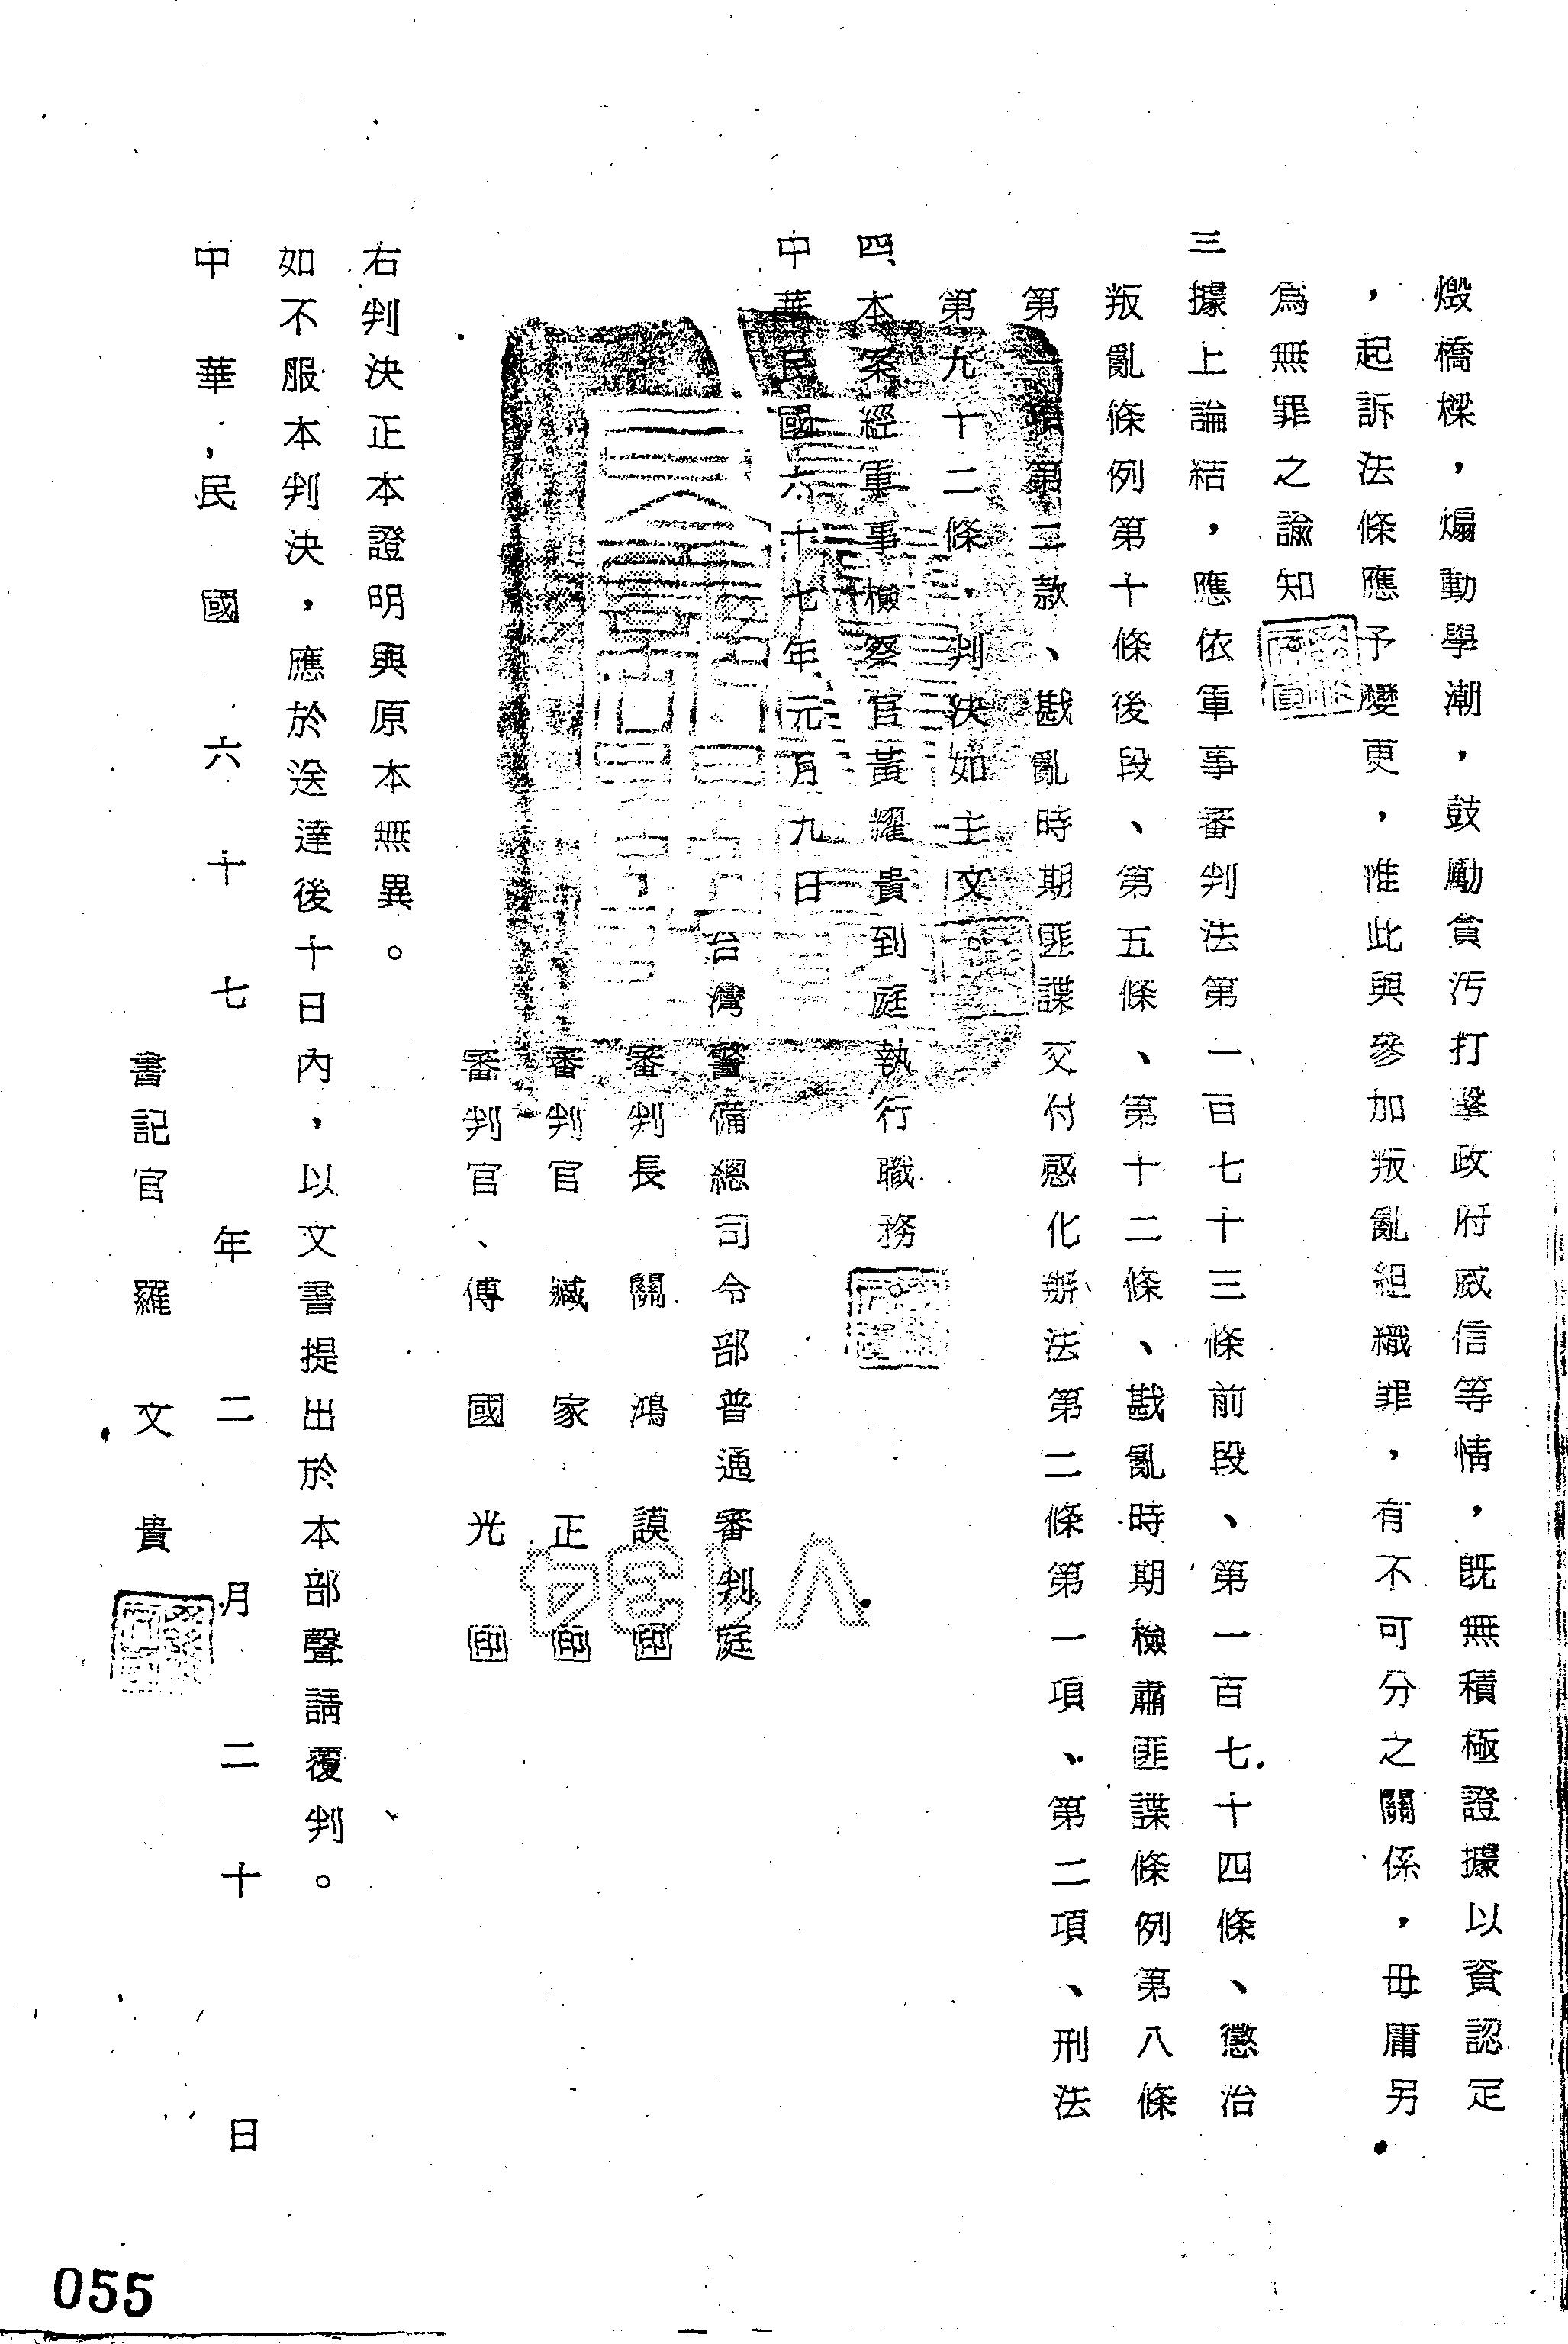 燬橋樑，煽動學潮，鼓勵貪污打擊政府威信等情，既無積極證據以資認定
，起訴法條應予變更，惟此與參加叛亂組織罪，有不可分之關係，毋庸另
為無罪之諭知。
三據上論結，應依軍事審判法第一百七十三條前段、第一百七十四條、懲治
叛亂條例第十條後段、第五條、第十二條、戡亂時期檢肅匪諜條例第八條
第一項第二款、戡亂時期匪諜交付感化辦法第二條第一項、第二項、刑法
第九十二條，判決如主文。
四、本案經軍事檢察官黃耀貴到庭執行職務。
中華民國六十七年元月九日
台灣警備總司令部普通審判庭
審判長 關鴻謨 印
審判官 臧家正 印
審判官、傅國光 印
右判決正本證明與原本無異。
如不服本判決，應於送達後十日內，以文書提出於本部聲請覆判。
中華民國六十七年二月二十日
書記官 羅文貴
055